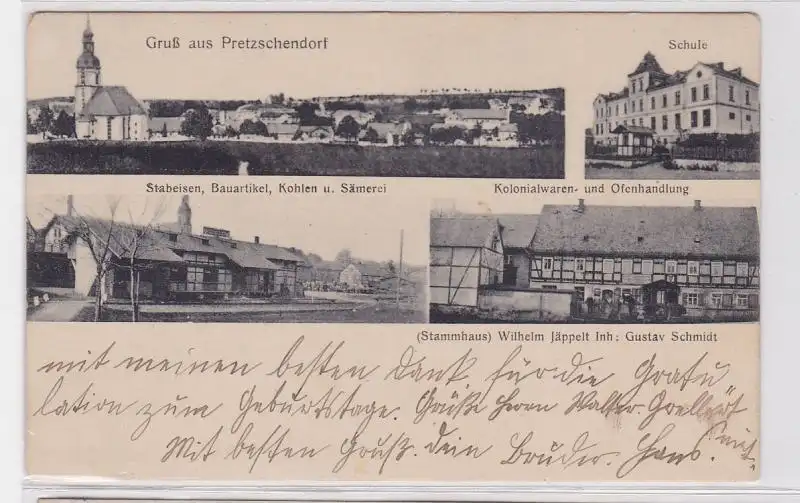 Gruß aus Pretzschendorf
Schule
Stabeisen, Bauartikel, Kohlen u. Sämerei
Kolonialwaren- und Ofenhandlung
(Stammhaus) Wilhelm Jäppelt Inh: Gustav Schmidt
mit meinen besten Dank für die Gratu
lation zum Geburtstage. Grüße Herrn Walter
Mit besten Gruß. Dein Bruder. Hans.